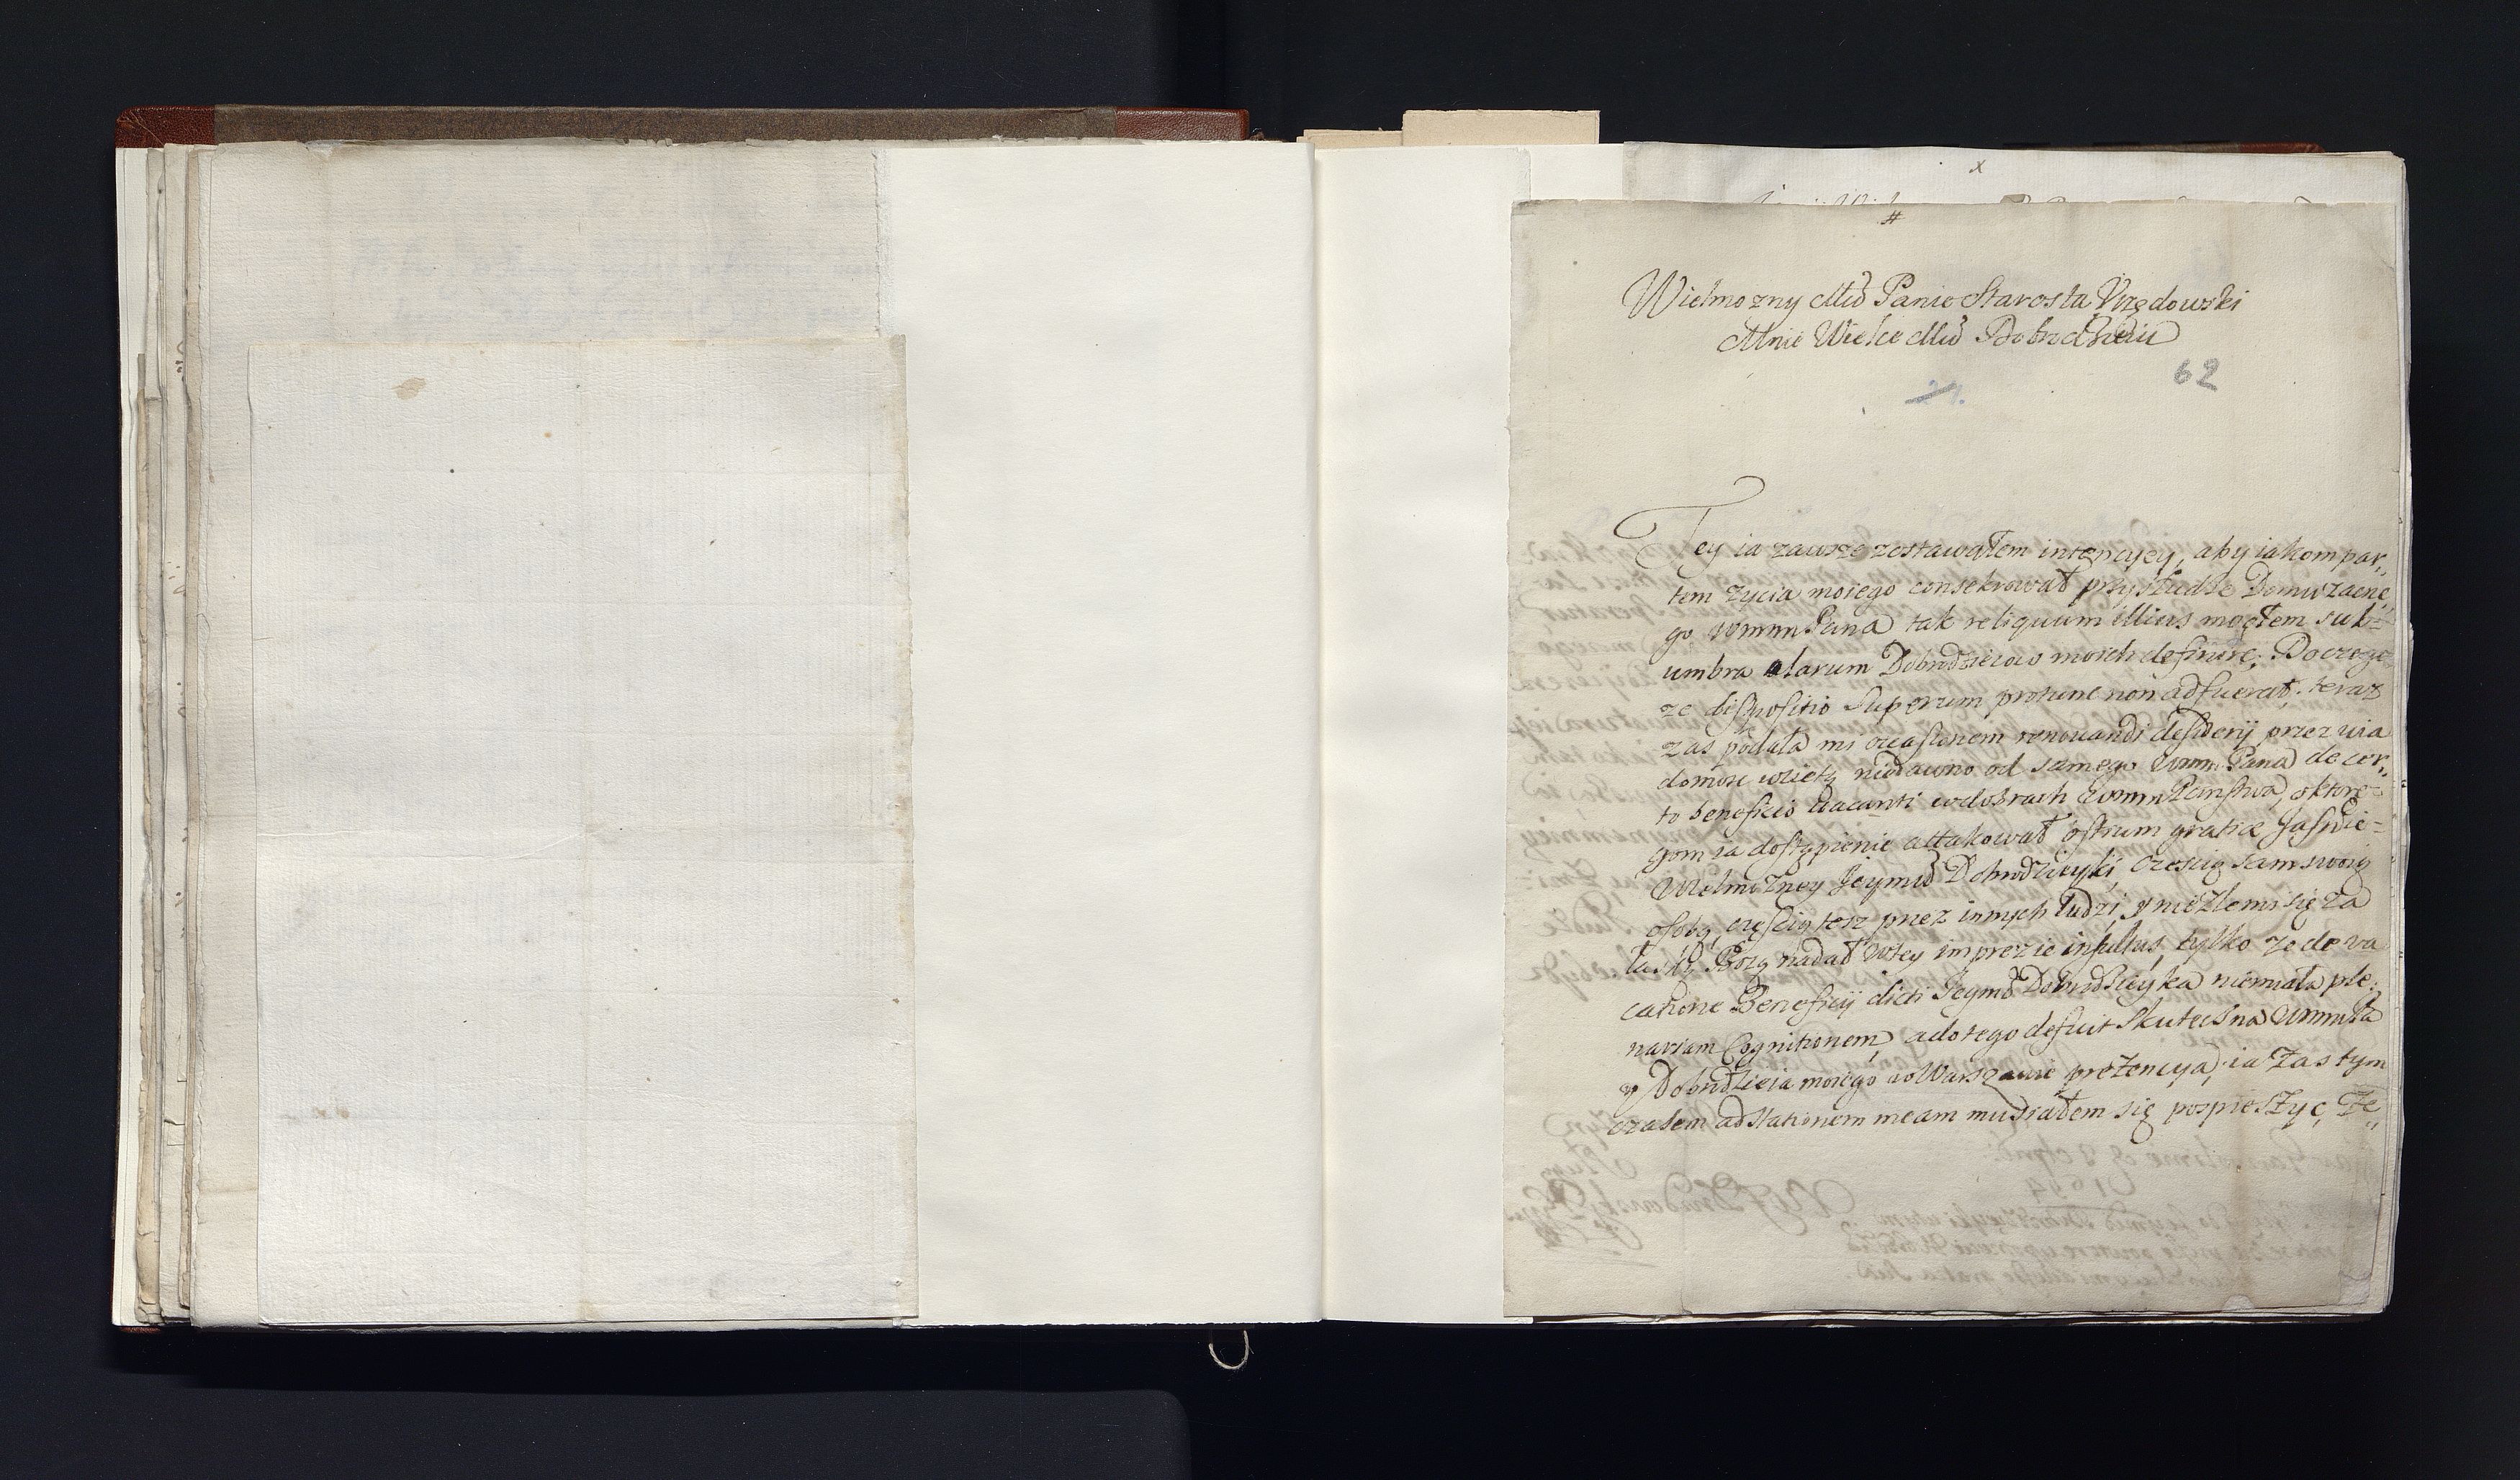 #
Wielmozny Mci Panie Starosta Vrzędowski
Mnie Wielce Mci Dobrodzieiu
62
Tey ia zawsze zostawałem intencyey, aby iakom par,,
tem zycia moiego consekrował przy słudze Domu zacne
go WmmPana tak reliquum illius mogłem sub=
umbra alarum Dobrodzieiow moich definire; Do czego
ze dispositio Superum protunc non adfuerat. teraz
zas podała mi occasionem renouandi desiderij przez wia
domosc wziętą niedawno od samego WmmPana de cer,,
to beneficio vacanti w dobrach WmmPanstwa, o ktore=
gom ia dostąpienie attakował ostrum gratiæ Jasnie=
Wielmozney Jeymci Dobrodzieyki, częscią sam swoią
osobą, częscią tesz przez innych ludzi, y niezle mi się za
łaską Bozą nadał w tey imprezie insultus, tylko ze de va
catione Beneficij dicti Jeymć Dobrodzieyka niemiała ple,
nariam Cognitionem, a do tego defuit skuteczna WmmPa
y Dobrodzieia moiego w Warszawie prezencya, ia zas tym
czasem ad stationem meam musiałem się pospieszyc, Ze,,